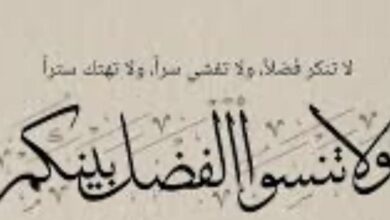 لا تنكر فضلاً، ولا تفشي سراً، ولا تهتك ستراً
ولا تنسوا الفضل بينكم